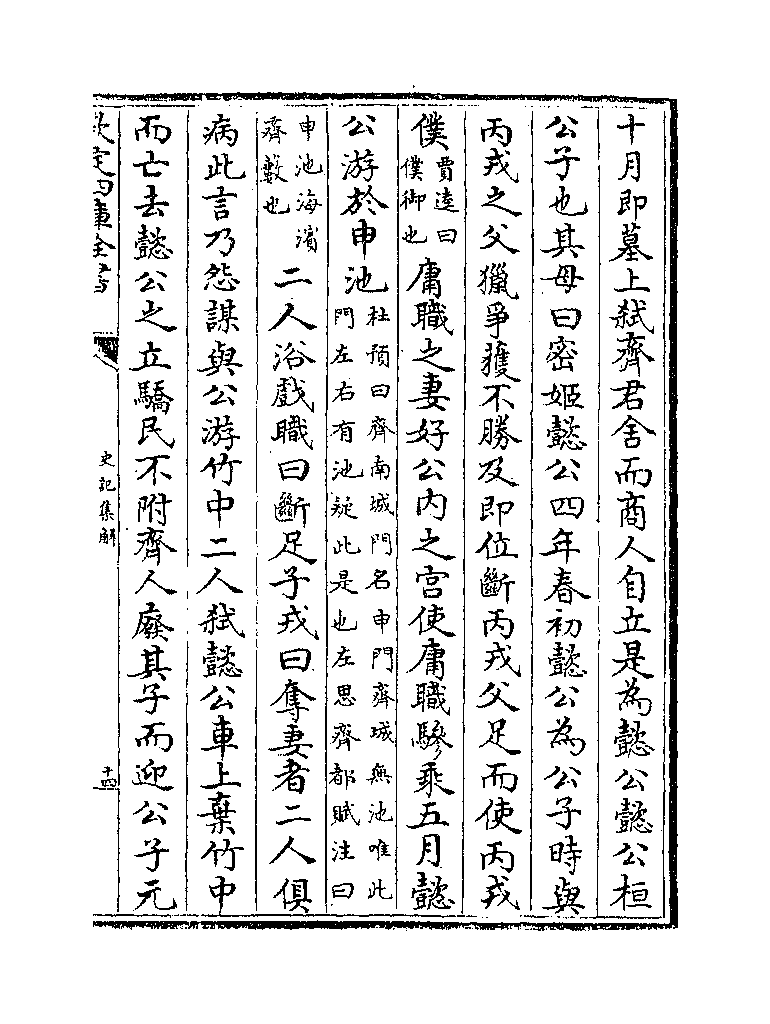 十月即墓上弑齊君舍而商人自立是為懿公懿公桓
公子也其母曰密姬懿公四年春初懿公為公子時與
丙戎之父獵爭獲不勝及即位斷丙戎父足而使丙戎
僕賈逵曰僕御也庸職之妻好公内之宫使庸職驂乘五月懿
公游於申池杜預曰齊南城門名申門齊城無池唯此門左右有池疑此是也左思齊都賦注曰
申池海濱齊藪也二人浴戲職曰斷足子戎曰奪妻者二人俱
病此言乃怨謀與公游竹中二人弑懿公車上棄竹中
而亡去懿公之立驕民不附齊人廢其子而迎公子元
欽定四庫全書
史記集解
十四